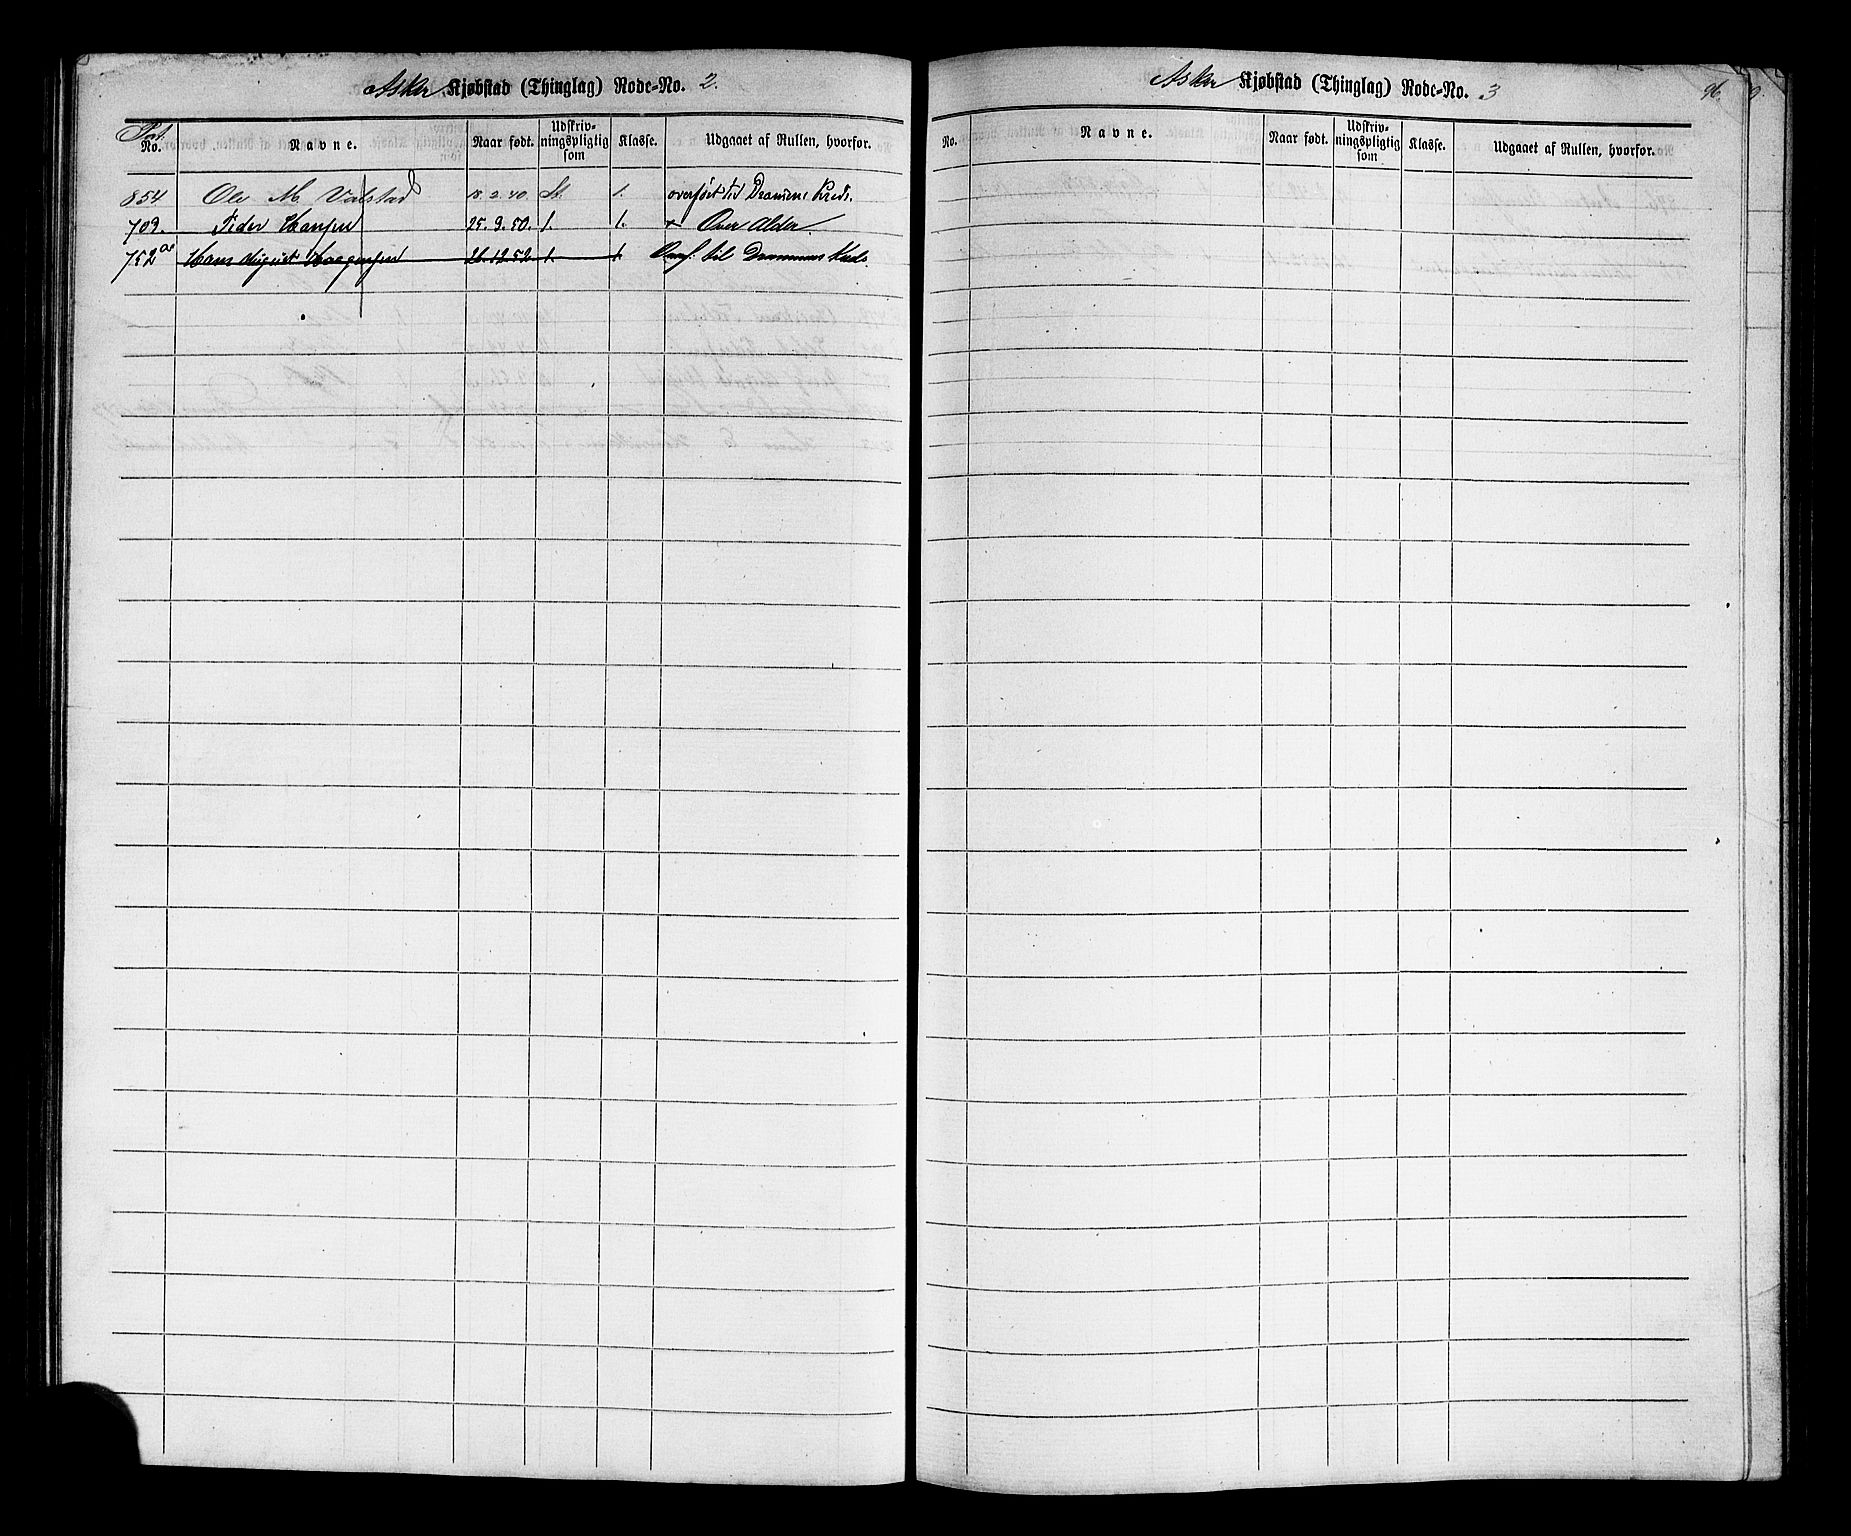 Asker Kjøbstad (Thinglag) Rode-No. 2.
Pat. No. Navne. Naar født. Udskrivningspligtig som Klasse. Udgaaet af Rullen, hvorfor.
854 Ole M. Valstad 18.2.40. St. 1. overført til Dramens Kreds.
709. Peder Hansen 25.9.50. 1. 1. Over Alder.
752 Hans August Haagensen 26.12.52. 1. 1. Overf. til Drammens Kreds.
Asker Kjøbstad (Thinglag) Rode-No. 3
96.
No. Navne. Naar født. Udskrivningspligtig som Klasse. Udgaaet af Rullen, hvorfor.